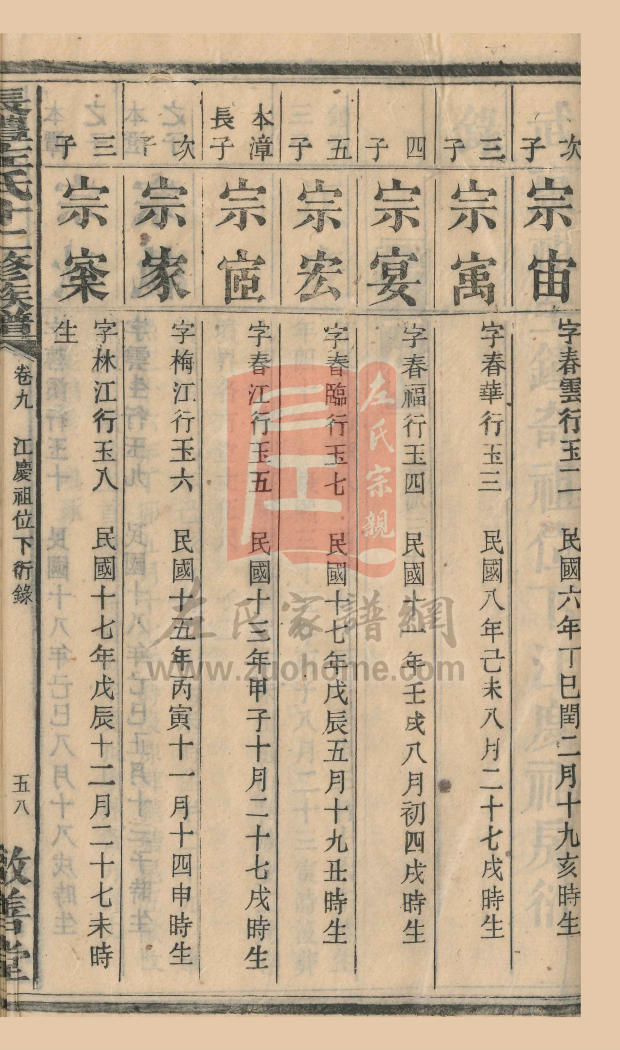 次子
宗宙
字春雲行玉二 民國六年丁巳閏二月十九亥時生
三子
宗寓
字春華行玉三 民國八年己未八月二十七戌時生
四子
宗宴
字春福行玉四 民國十一年壬戌八月初四戌時生
五子
宗宏
字春臨行玉七 民國十七年戊辰五月十九丑時生
本漳長子
宗宦
字春江行玉五 民國十三年甲子十月二十七戌時生
次子
宗家
字梅江行玉六 民國十五年丙寅十一月十四申時生
三子
宗寀
字林江行玉八 民國十七年戊辰十二月二十七未時
生
左氏十二修族譜
卷九 江慶祖位下衍錄
五八
敦善堂
左氏宗親
左氏家譜網
www.zuohome.com